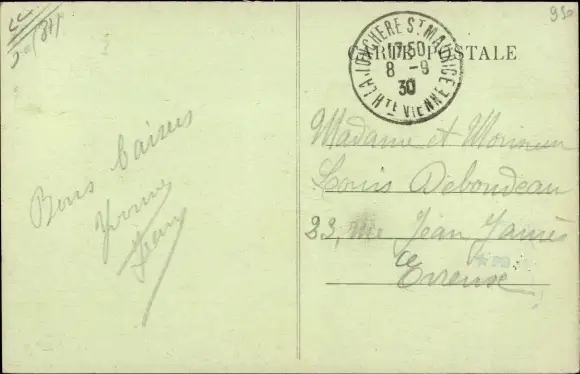 950
CARTE POSTALE
LA JONCHERE ST MAURICE
17 50
8 - 9
30
HTE VIENNE
Bons baisers
Yvonne
Jean
Madame et Monsieur
Louis Deboudeau
23, rue Jean Jaurès
Evreux